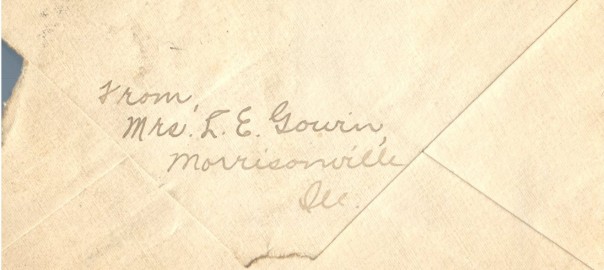 From,
Mrs. L. E. Gowin,
Morrisonville
Ill.